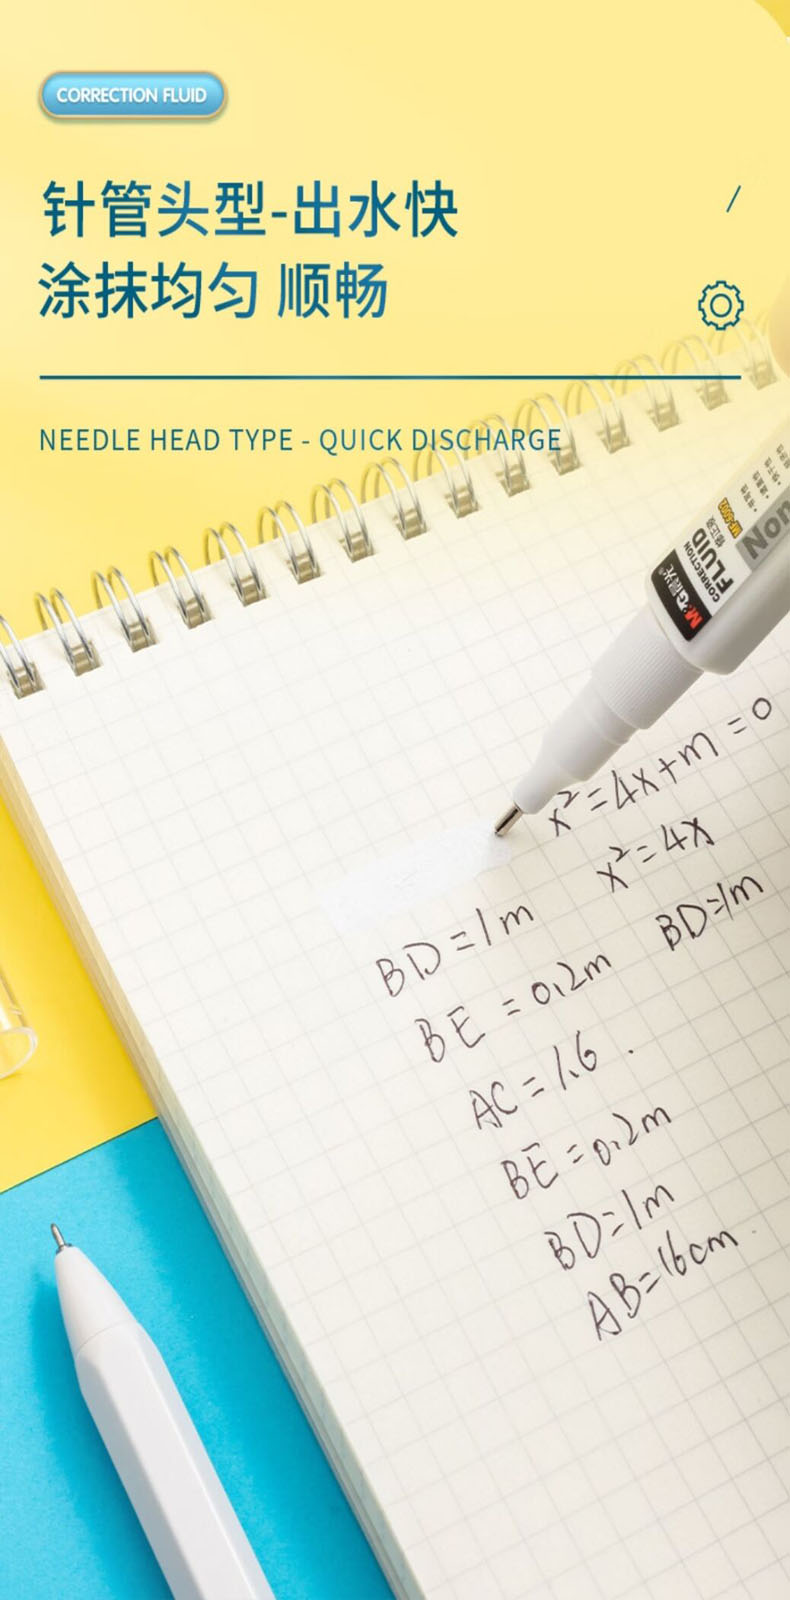 CORRECTION FLUID
针管头型-出水快
涂抹均匀 顺畅
NEEDLE HEAD TYPE - QUICK DISCHARGE
M&G晨光
CORRECTION
FLUID
修正液
MF-6002
x²=4x+m=0
x²=4x
BD=1m
BD=1m
BE=0.2m
AC=1.6.
BE=0.2m
BD=1m
AB=16cm